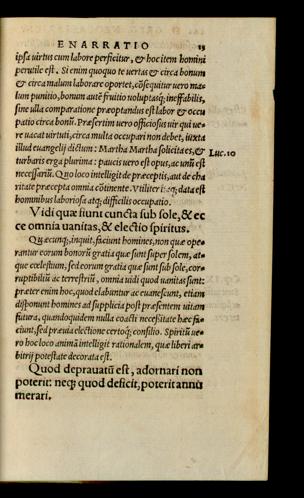 ENARRATIO 13
ipsa uirtus cum labore perficitur, & hoc item homini
perutile est. Si enim quoquo te uertas & circa bonum
& circa malum laborare oportet, cōsequitur uero ma-
lum punitio, bonum autē fruitio uoluptasq; ineffabilis,
sine ulla comparatione præoptandus est labor & occu
patio circa bonū. Præsertim uero officiosus uir qui ue-
re uacat uirtuti, circa multa occupari non debet, iuxta
illud euangelij dictum: Martha Martha solicita es, &
Luc. 10
turbaris erga plurima: paucis uero est opus, ac unū est
necessariū. Quo loco intelligit de præceptis, aut de cha
ritate præcepta omnia cōtinente. Vtiliter itaq; data est
hominibus laboriosa atq; difficilis occupatio.
Vidi quæ fiunt cuncta sub sole, & ec
ce omnia uanitas, & electio spiritus.
Quæcunq;, inquit, faciunt homines, non quæ ope-
rantur eorum bonorū gratia quæ sunt super solem, at-
que cœlestium, sed eorum gratia quæ sunt sub sole, cor-
ruptibiliū ac terrestriū, omnia uidi quod uanitas sint:
præter enim hoc, quod elabuntur ac euanescunt, etiam
dispōnunt homines ad supplicia post præsentem uitam
futura, quandoquidem nulla coacti necessitate hæc fa-
ciunt, sed præuia electione certoq; consilio. Spiritū ue-
ro hoc loco animā intelligit rationalem, quæ liberi ar-
bitrij potestate decorata est.
Quod deprauatū est, adornari non
poterit: neq; quod deficit, poterit annu
merari.